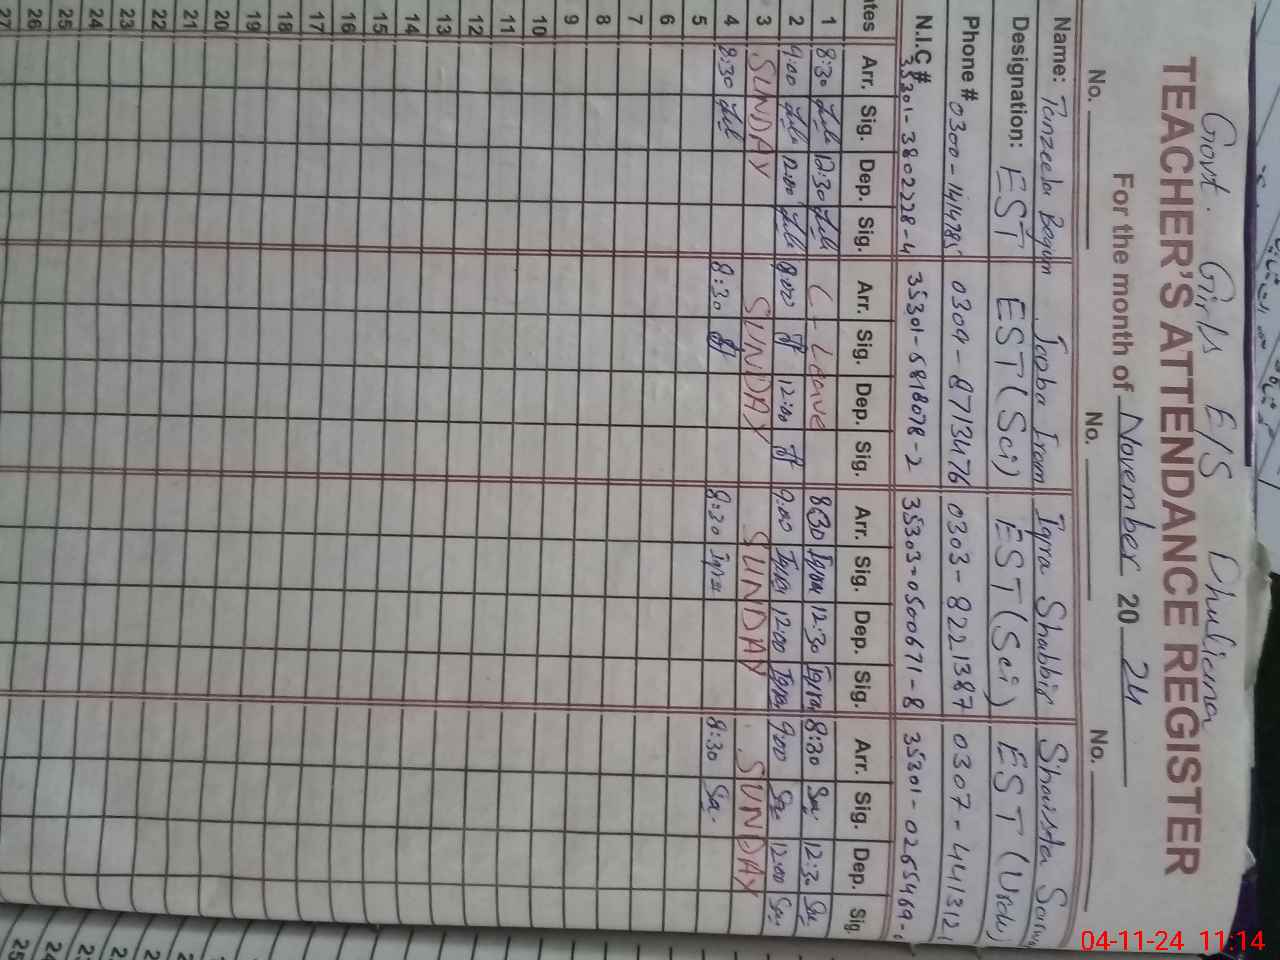 Govt. Girls E/S Dhuliana
TEACHER'S ATTENDANCE REGISTER
For the month of November 20 24
No. No. No.
Name: Tanzeela Begum Iqra Shabbir Shaista
Designation: EST EST (Sci) EST (Sci) EST (Urdu)
Phone # 0309-8713476 0303-8221387
N.I.C # 35301-3802228-4 35301-5818078-2 35303-0500671-8
Arr. Sig. Dep. Sig. Arr. Sig. Dep. Sig. Arr. Sig. Dep. Sig. Arr. Sig. Dep. Sig.
1 8:30 12:30 C-Leave 8:30 Iqra 12:30 Iqra 8:30 12:30
2 9:00 12:00 9:00 12:00 9:00 Iqra 12:00 Iqra 9:00 12:00
3 SUNDAY SUNDAY SUNDAY SUNDAY
4 8:30 8:30 8:30 Iqra 8:30
5
6
7
8
9
10
11
12
13
14
15
16
17
18
19
20
21
22
23
24
25
26
27
04-11-24 11:14